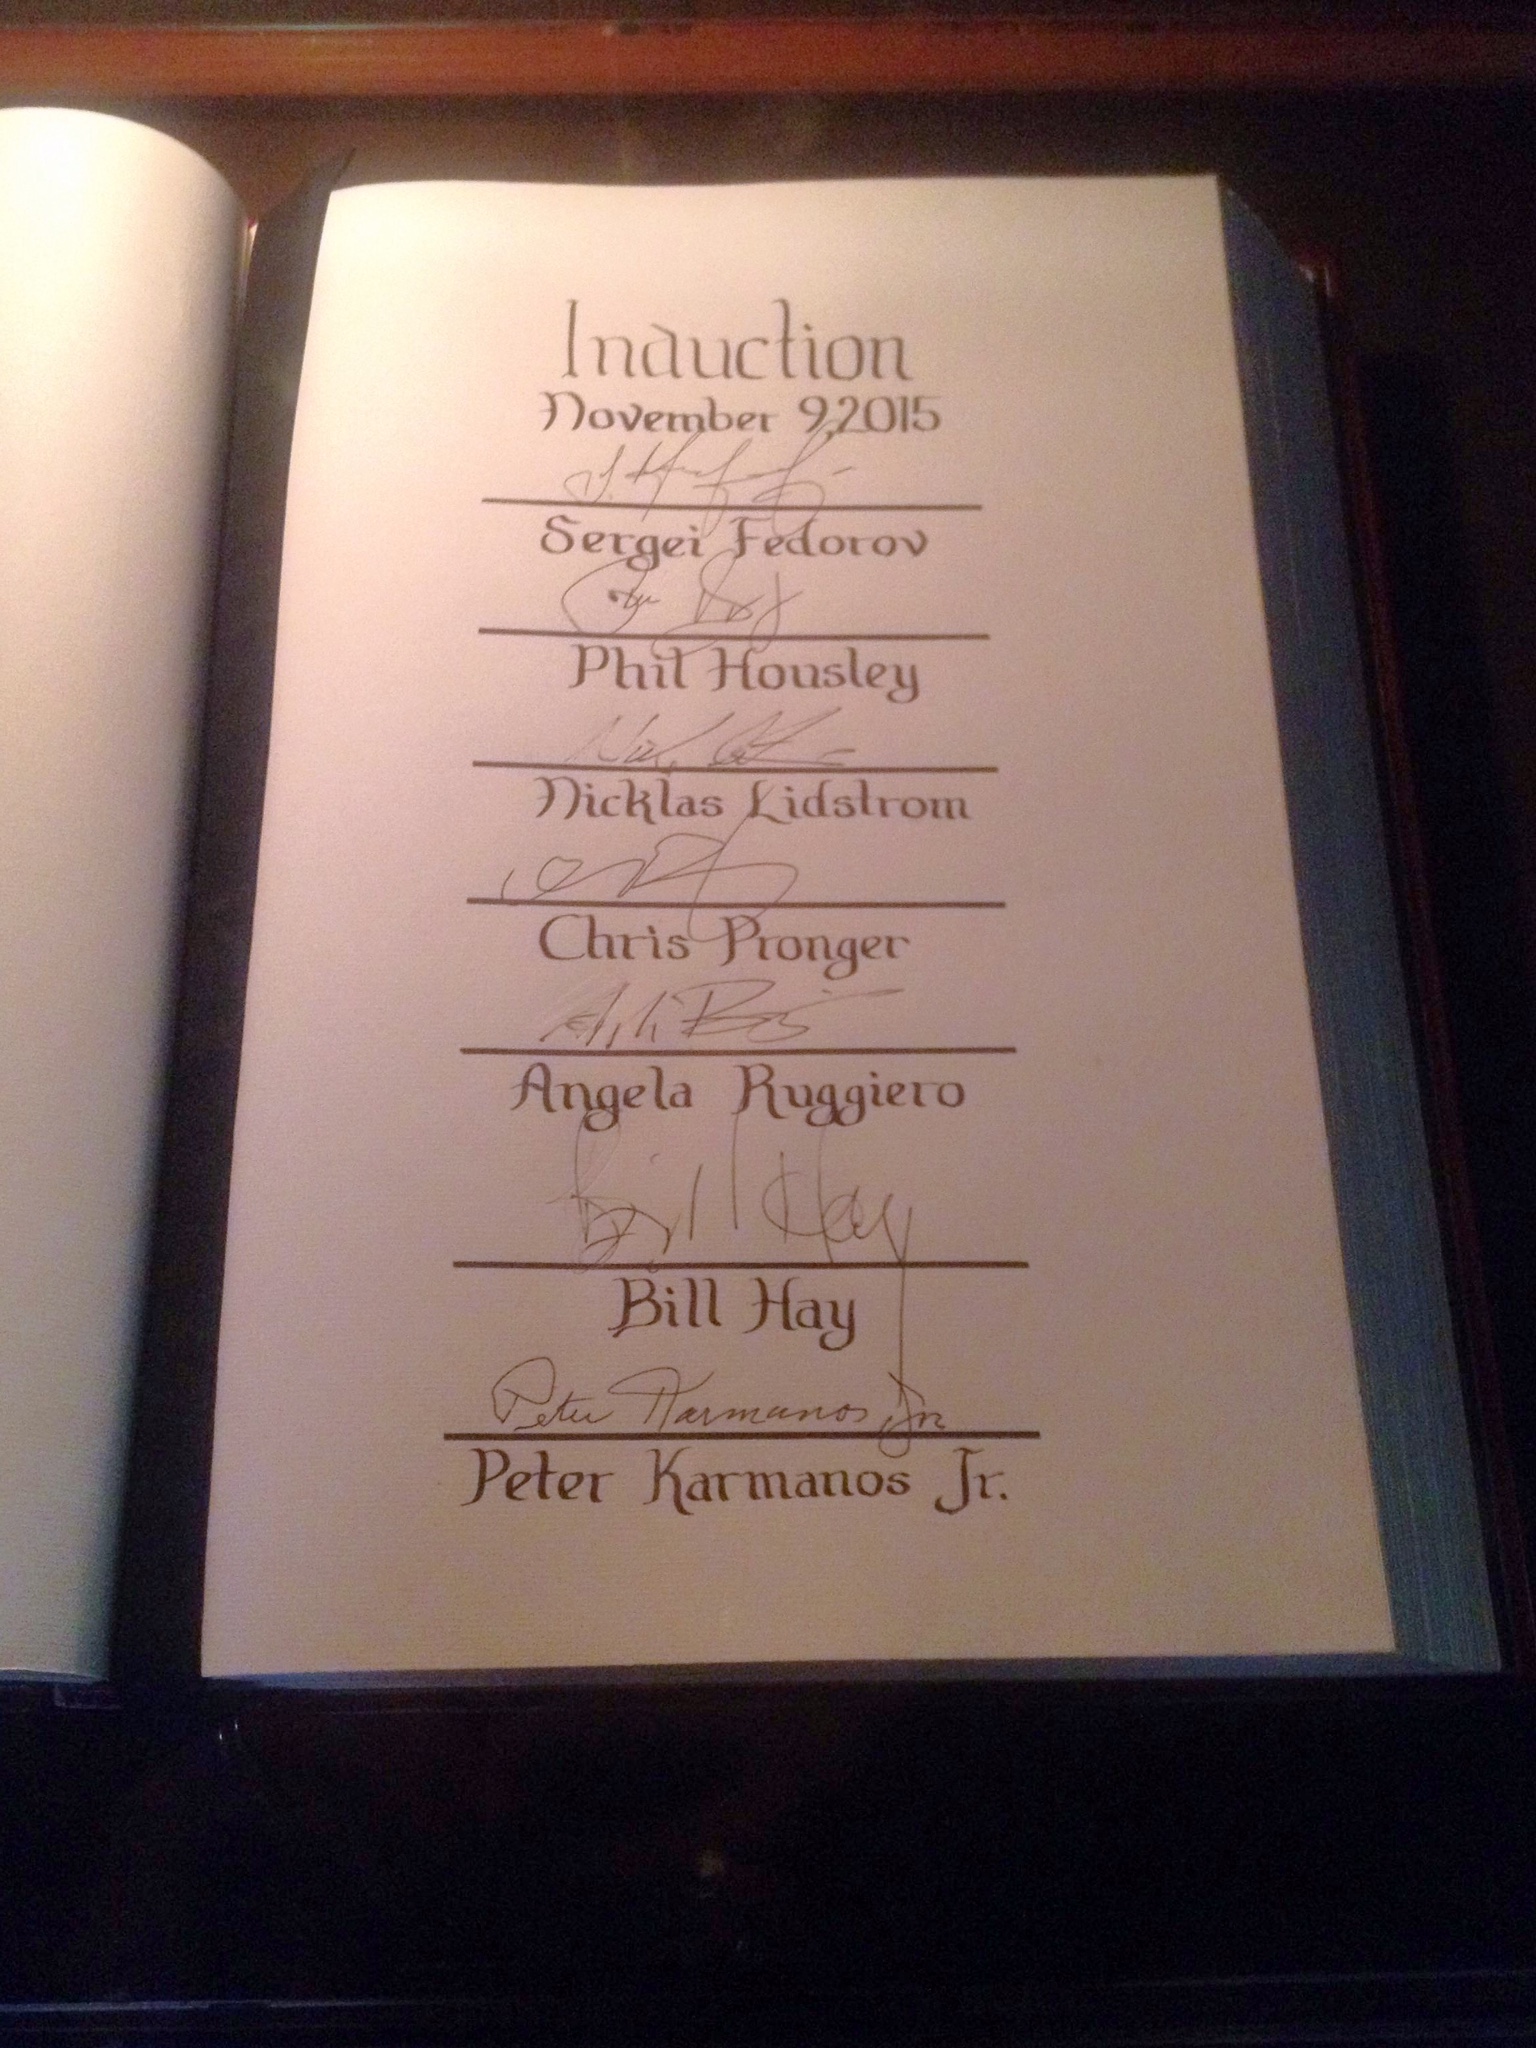 Induction
November 9, 2015
Sergei Fedorov
Phil Housley
Nicklas Lidstrom
Chris Pronger
Angela Ruggiero
Bill Hay
Bill Hay
Peter Karmanos, Jr.
Peter Karmanos Jr.